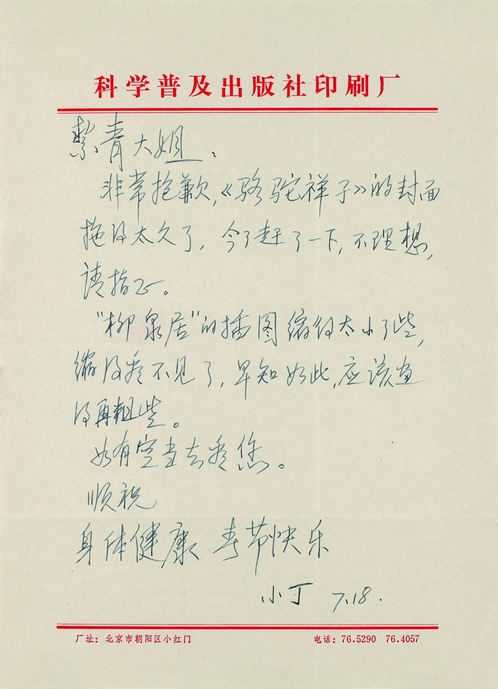 科学普及出版社印刷厂
絜青大姐：
非常抱歉，《骆驼祥子》的封面
拖得太久了，今了赶了一下，不理想，
请指正。
"柳泉居"的插图缩得太小了些，
缩得看不见了，早知如此，应该画
得再粗些。
如有空当去看您。
顺祝
身体健康 春节快乐
小丁 7.18.
厂址：北京市朝阳区小红门 电话：76.5290 76.4057